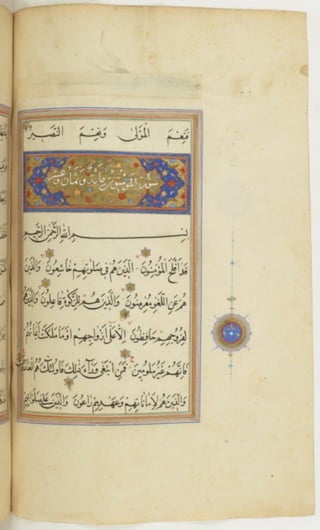 فنعم المولى ونعم النصير
سورة المومنون مائة وثمان وعشر
بسم الله الرحمن الرحيم
قد أفلح المؤمنون الذين هم في صلوتهم خاشعون والذين
هم عن اللغو معرضون والذين هم للزكوة فاعلون والذين هم
لفروجهم حافظون إلا على أزواجهم أو ما ملكت أيمانهم
فانهم غير ملومين فمن ابتغى وراء ذلك فأولئك هم العادون
والذين هم لأماناتهم وعهدهم راعون والذين هم على صلواتهم